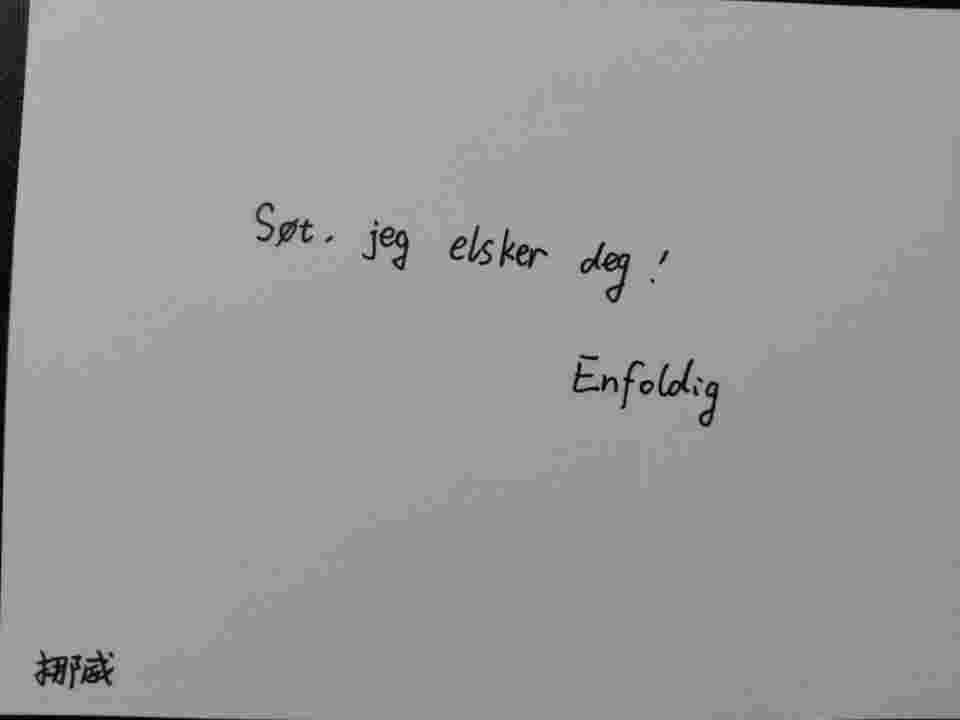 Søt. jeg elsker deg!
Enfoldig
挪威